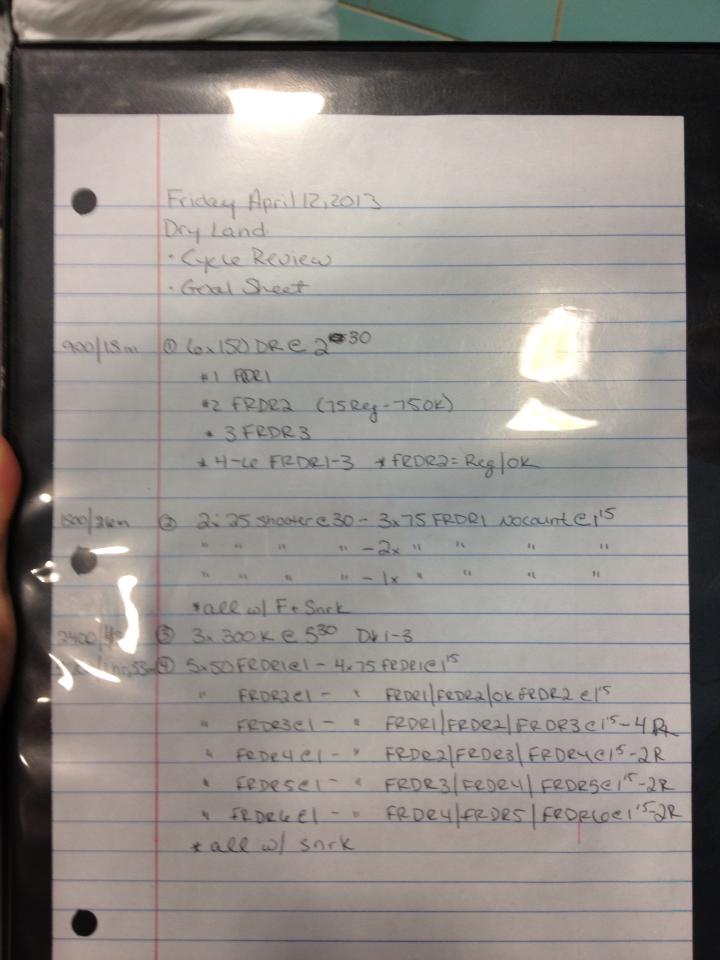 Friday April 12, 2013
Dry Land
• Cycle Review
• Goal Sheet
900/15m ① 6x150 DR @ 2 30
#1 FRDR1
#2 FRDR2 (75 Reg - 75 OK)
* 3 FRDR3
* 4-6 FRDR1-3 * FRDR2 = Reg/OK
1500/26m ② 2x25 shooter @ 30 - 3x75 FRDR1 No count @ 1 15
" " " " - 2x " " " "
" " " " - 1x " " " "
*all w/ F + Snrk
2400/ ③ 3x300 K @ 5 30 D↓ 1-3
④ 5x50 FRDR1 @ 1 - 4x75 FRDR1 @ 1 15
" FRDR2 @ 1 - " FRDR1/FRDR2/OK FRDR2 @ 1 15
" FRDR3 @ 1 - " FRDR1/FRDR2/FRDR3 @ 1 15 - 4R
" FRDR4 @ 1 - " FRDR2/FRDR3/FRDR4 @ 1 15 - 2R
" FRDR5 @ 1 - " FRDR3/FRDR4/FRDR5 @ 1 15 - 2R
" FRDR6 @ 1 - " FRDR4/FRDR5/FRDR6 @ 1 15 - 2R
* all w/ snrk